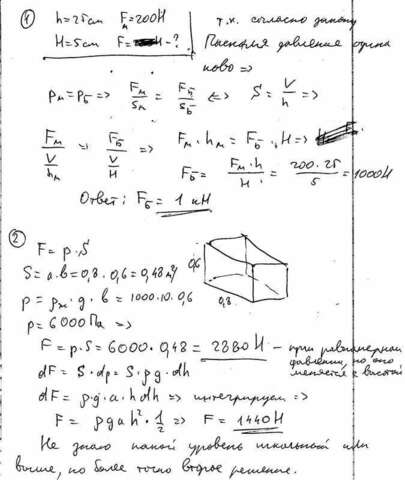 ① h=25см F_м=200Н т.к. согласно закону
H=5см F_б=Н-? Паскаля давление одина
ково =>
p_м=p_б => F_м/S_м = F_б/S_б <=> S = V/h =>
F_м/(V/h_м) = F_б/(V/H) => F_м·h_м = F_б·H =>
F_б = F_м·h/H = 200·25/5 = 1000Н
Ответ: F_б = 1 кН
② F = p·S
S = a·b = 0,8·0,6 = 0,48м²
0,6
p = ρ_ж·g·b = 1000·10·0,6
0,8
p = 6000Па =>
F = p·S = 6000·0,48 = 2880Н – при равномерном
давлении, но оно
меняется с высотой
dF = S·dp = S·ρg·dh
dF = ρ·g·a·h dh => интегрируем =>
F = ρgah²·1/2 => F = 1440Н
Не знаю какой уровень школьный или
выше, но более точно второе решение.